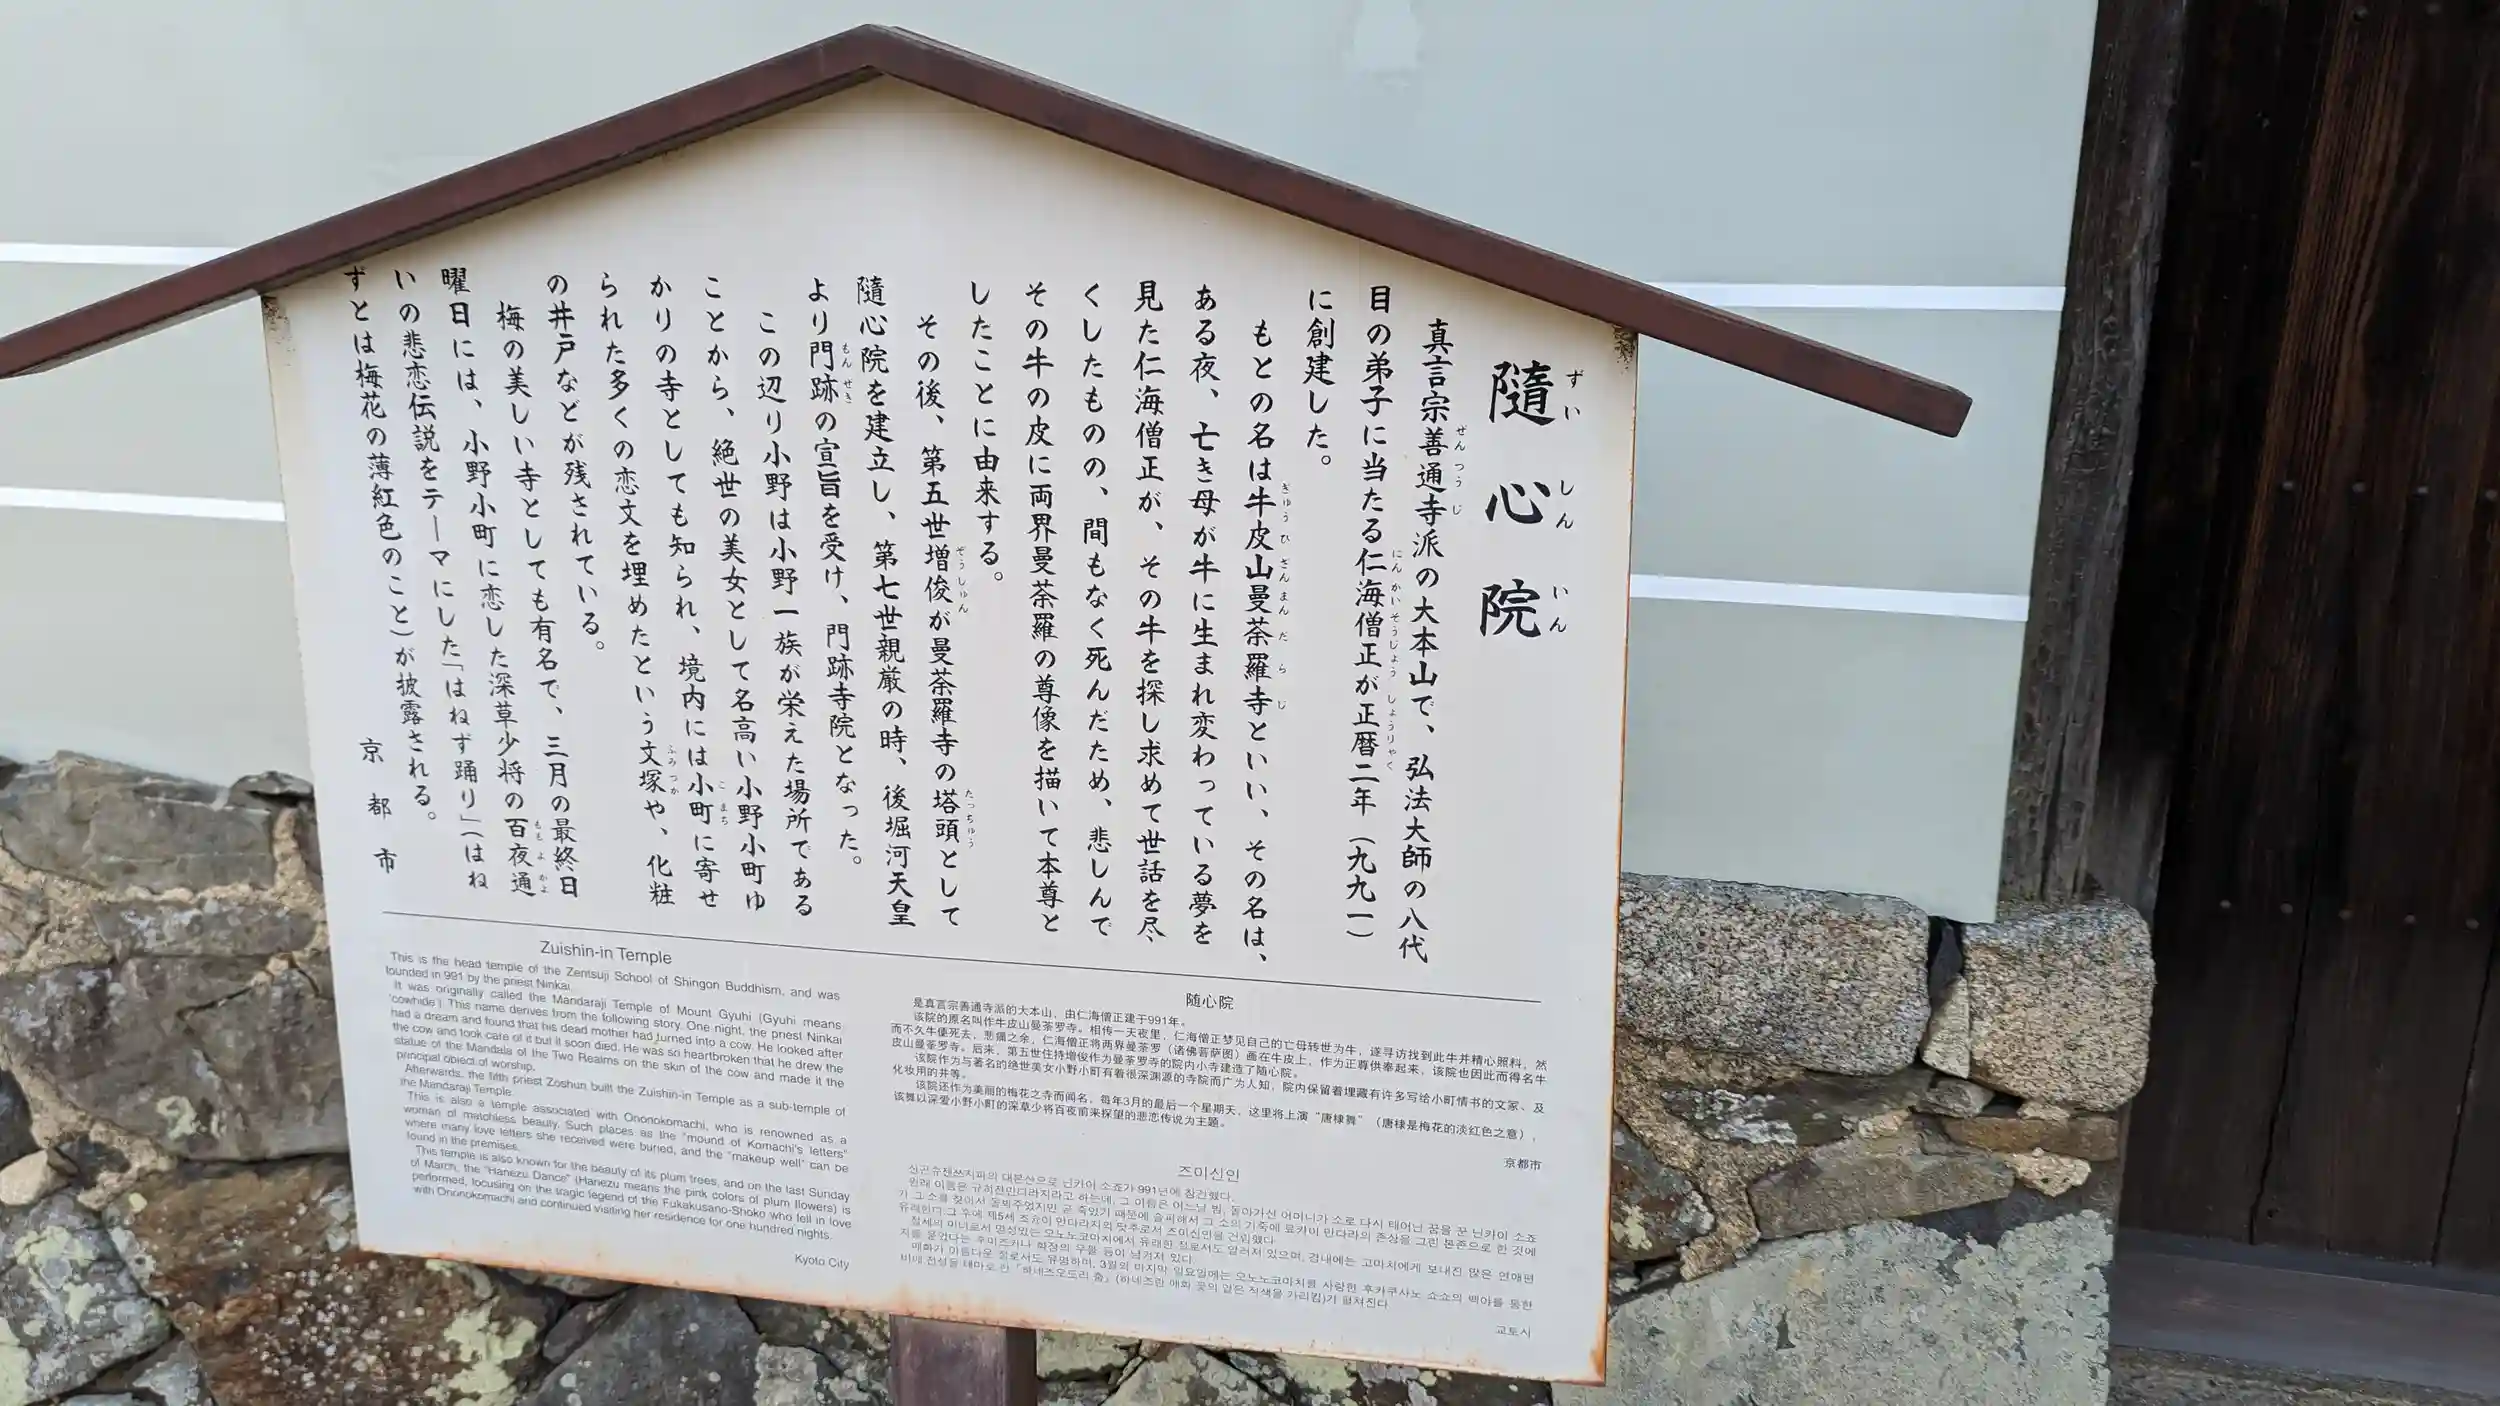 隨心院
真言宗善通寺派の大本山で、弘法大師の八代
目の弟子に当たる仁海僧正が正暦二年（九九一）
に創建した。
もとの名は牛皮山曼荼羅寺といい、その名は、
ある夜、亡き母が牛に生まれ変わっている夢を
見た仁海僧正が、その牛を探し求めて世話を尽
くしたものの、間もなく死んだため、悲しんで
その牛の皮に両界曼荼羅の尊像を描いて本尊と
したことに由来する。
その後、第五世増俊が曼荼羅寺の塔頭として
隨心院を建立し、第七世親厳の時、後堀河天皇
より門跡の宣旨を受け、門跡寺院となった。
この辺り小野は小野一族が栄えた場所である
ことから、絶世の美女として名高い小野小町ゆ
かりの寺としても知られ、境内には小町に寄せ
られた多くの恋文を埋めたという文塚や、化粧
の井戸などが残されている。
梅の美しい寺としても有名で、三月の最終日
曜日には、小野小町に恋した深草少将の百夜通
いの悲恋伝説をテーマにした「はねず踊り」（はね
ずとは梅花の薄紅色のこと）が披露される。
京都市
Zuishin-in Temple
This is the head temple of the Zentsuji School of Shingon Buddhism, and was
founded in 991 by the priest Ninkai.
It was originally called the Mandaraji Temple of Mount Gyuhi (Gyuhi means
'cowhide'). This name derives from the following story. One night, the priest Ninkai
had a dream and found that his dead mother had turned into a cow. He looked after
the cow and took care of it but it soon died. He was so heartbroken that he drew the
statue of the Mandala of the Two Realms on the skin of the cow and made it the
principal object of worship.
Afterwards, the fifth priest Zoshun built the Zuishin-in Temple as a sub-temple of
the Mandaraji Temple.
This is also a temple associated with Ononokomachi, who is renowned as a
woman of matchless beauty. Such places as the "mound of Komachi's letters"
where many love letters she received were buried, and the "makeup well" can be
found in the premises.
This temple is also known for the beauty of its plum trees, and on the last Sunday
of March, the "Hanezu Dance" (Hanezu means the pink colors of plum flowers) is
performed, focusing on the tragic legend of the Fukakusano-Shoko who fell in love
with Ononokomachi and continued visiting her residence for one hundred nights.
Kyoto City
随心院
是真言宗善通寺派的大本山，由仁海僧正建于991年。
该院的原名叫作牛皮山曼荼罗寺。相传一天夜里，仁海僧正梦见自己的亡母转世为牛，遂寻访找到此牛并精心照料，然
而不久牛便死去，悲痛之余，仁海僧正将两界曼荼罗（诸佛菩萨图）画在牛皮上，作为正尊供奉起来，该院也因此而得名牛
皮山曼荼罗寺。后来，第五世住持增俊作为曼荼罗寺的院内小寺建造了随心院。
该院作为与著名的绝世美女小野小町有着很深渊源的寺院而广为人知，院内保留着埋藏有许多写给小町情书的文冢、及
化妆用的井等。
该院还作为美丽的梅花之寺而闻名，每年3月的最后一个星期天，这里将上演“唐棣舞”（唐棣是梅花的淡红色之意），
该舞以深爱小野小町的深草少将百夜前来探望的悲恋传说为主题。
京都市
즈이신인
신곤슈젠쓰지파의 대본산으로 닌카이 소죠가 991년에 창건했다.
원래 이름은 규히잔만다라지라고 하는데, 그 이름은 어느날 밤, 돌아가신 어머니가 소로 다시 태어난 꿈을 꾼 닌카이 소죠
가 그 소를 찾아서 돌봐주었지만 곧 죽었기 때문에 슬퍼해서 그 소의 가죽에 료카이 만다라의 존상을 그린 본존으로 한 것에
유래한다. 그 후에 제5세 조슌이 만다라지의 탓추로서 즈이신인을 건립했다.
절세의 미녀로서 명성있는 오노노코마치에서 유래한 절로서도 알려져 있으며, 경내에는 고마치에게 보내진 많은 연애편
지를 묻었다는 후미즈카나 화장의 우물 등이 남겨져 있다.
매화가 아름다운 절로서도 유명하며, 3월의 마지막 일요일에는 오노노코마치를 사랑한 후카쿠사노 쇼쇼의 백야를 통한
비애 전설을 테마로 한 「하네즈오도리 춤」(하네즈란 매화 꽃의 엷은 적색을 가리킴)가 펼쳐진다
교토시